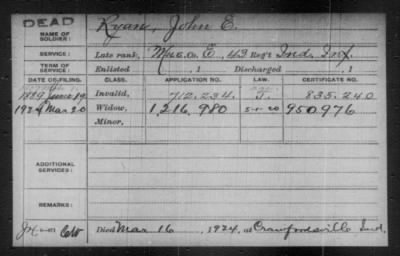 DEAD
NAME OF SOLDIER: Ryan, John E.
SERVICE: Late rank, Mus. Co. E, 43 Reg't Ind. Inf.
TERM OF SERVICE: Enlisted , 1 Discharged , 1
DATE OF FILING. CLASS. APPLICATION NO. LAW. CERTIFICATE NO.
1889 Invalid, 712.234. 835.240
1924 Mar 20 Widow, 1,216,980 5-1-20 950.976
Minor,
ADDITIONAL SERVICES:
REMARKS:
Died Mar 16, 1924, at Crawfordsville Ind.